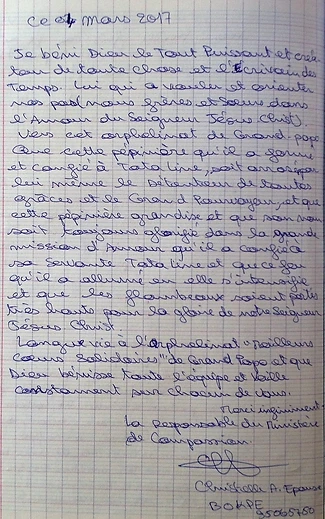 Ce 04 Mars 2017
Je béni Dieu le Tout Puissant et créa-
teur de toute chose et l'Ecrivain des
Temps. Lui qui a voulu et orienter
nos pas (nous frères et Soeurs dans
l'Amour du Seigneur Jésus Christ)
Vers cet orphelinat de Grand-popo
Que cette pépinière qu'il a formé
et confié à Tata Line, soit arrosé par
lui même le Détenteur de toutes
grâces et le Grand Pourvoyeur, et que
cette pépinière grandise et que son nom
soit toujours glorifié dans la grande
mission d'Amour qu'il a confié à
sa servante Tata Line et que ce feu
qu'il a allumé en elle s'intensifie
et que les flambeaux soient portés
très hauts pour la gloire de notre Seigneur
Jésus Christ.
Longue vie à l'Orphelinat
Coeurs Solidaires" de Grand Popo et que
Dieu bénisse toute l'équipe et Veille
constamment sur chacun de vous.
Merci infiniment
La Responsable du Ministère
de Compassion.
Christelle A. Epouse
95065750